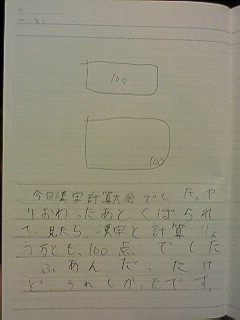 100
100
今日漢字計算大会でした。や
りおわったあと、くばられ
て、見たら、漢字と計算りょ
う方とも、100点、でした
ふあんだったけ
どうれしかったです。